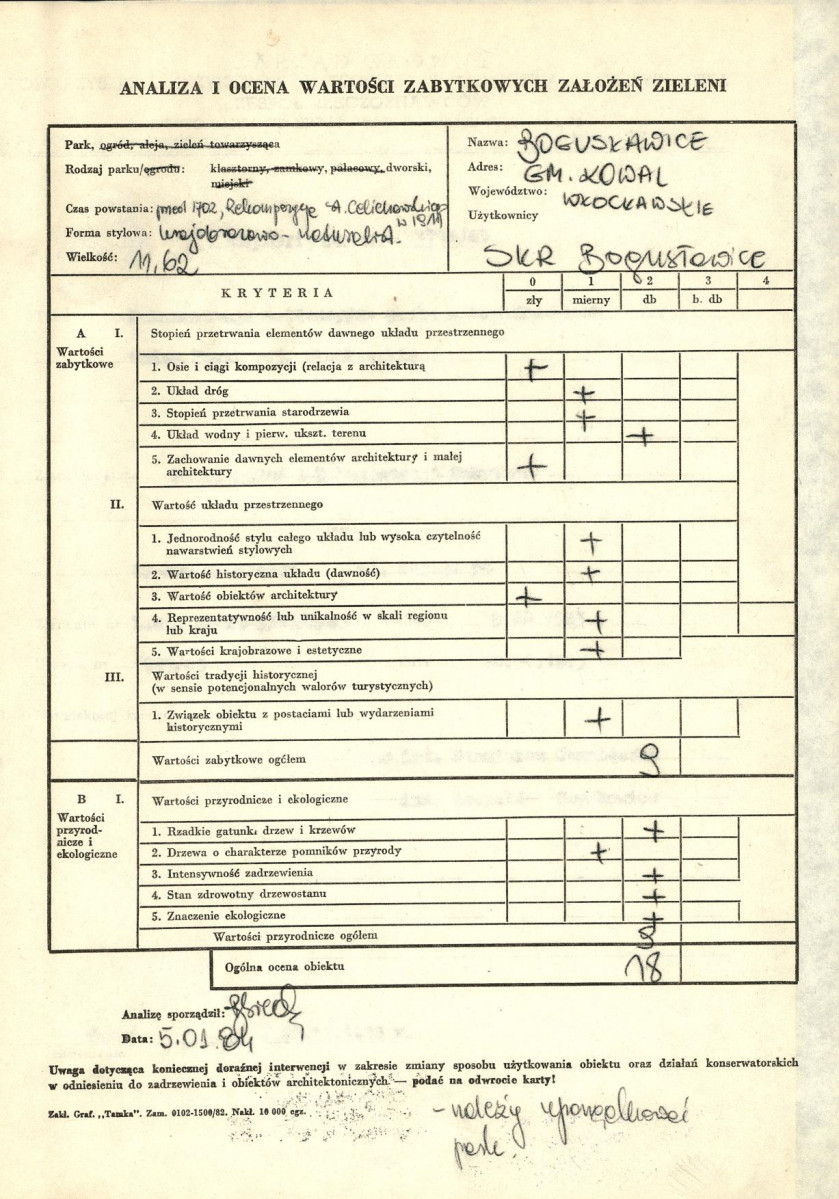 ANALIZA I OCENA WARTOŚCI ZABYTKOWYCH ZAŁOŻEŃ ZIELENI
Park, ogród, aleja, zieleń towarzysząca
Rodzaj parku/ogrodu: klasztorny, zamkowy, pałacowy, dworski,
miejski
Czas powstania: przed 1702, Rekompozycje A. Celichowskiego
w 1911
Forma stylowa: krajobrazowo-naturalna.
Wielkość: 11,62
Nazwa: BOGUSŁAWICE
Adres: GM. KOWAL
Województwo: WŁOCŁAWSKIE
Użytkownicy
SKR Bogusławice
KRYTERIA 0 1 2 3 4
zły mierny db b. db
A I. Stopień przetrwania elementów dawnego układu przestrzennego
Wartości
zabytkowe
1. Osie i ciągi kompozycji (relacja z architekturą +
2. Układ dróg +
3. Stopień przetrwania starodrzewia +
4. Układ wodny i pierw. ukszt. terenu +
5. Zachowanie dawnych elementów architektury i małej
architektury +
II. Wartość układu przestrzennego
1. Jednorodność stylu całego układu lub wysoka czytelność
nawarstwień stylowych +
2. Wartość historyczna układu (dawność) +
3. Wartość obiektów architektury +
4. Reprezentatywność lub unikalność w skali regionu
lub kraju +
5. Wartości krajobrazowe i estetyczne +
III. Wartości tradycji historycznej
(w sensie potencjonalnych walorów turystycznych)
1. Związek obiektu z postaciami lub wydarzeniami
historycznymi +
Wartości zabytkowe ogółem 9
B I. Wartości przyrodnicze i ekologiczne
Wartości
przyrod-
nicze i
ekologiczne
1. Rzadkie gatunki drzew i krzewów +
2. Drzewa o charakterze pomników przyrody +
3. Intensywność zadrzewienia +
4. Stan zdrowotny drzewostanu +
5. Znaczenie ekologiczne +
Wartości przyrodnicze ogółem 9
Ogólna ocena obiektu 18
Analizę sporządził:
Data: 5.01.84
Uwaga dotycząca koniecznej doraźnej interwencji w zakresie zmiany sposobu użytkowania obiektu oraz działań konserwatorskich
w odniesieniu do zadrzewienia i obiektów architektonicznych. — podać na odwrocie karty!
Zakł. Graf. „Tamka". Zam. 0102-1500/82. Nakł. 10 000 egz.
- należy uporządkować
park.